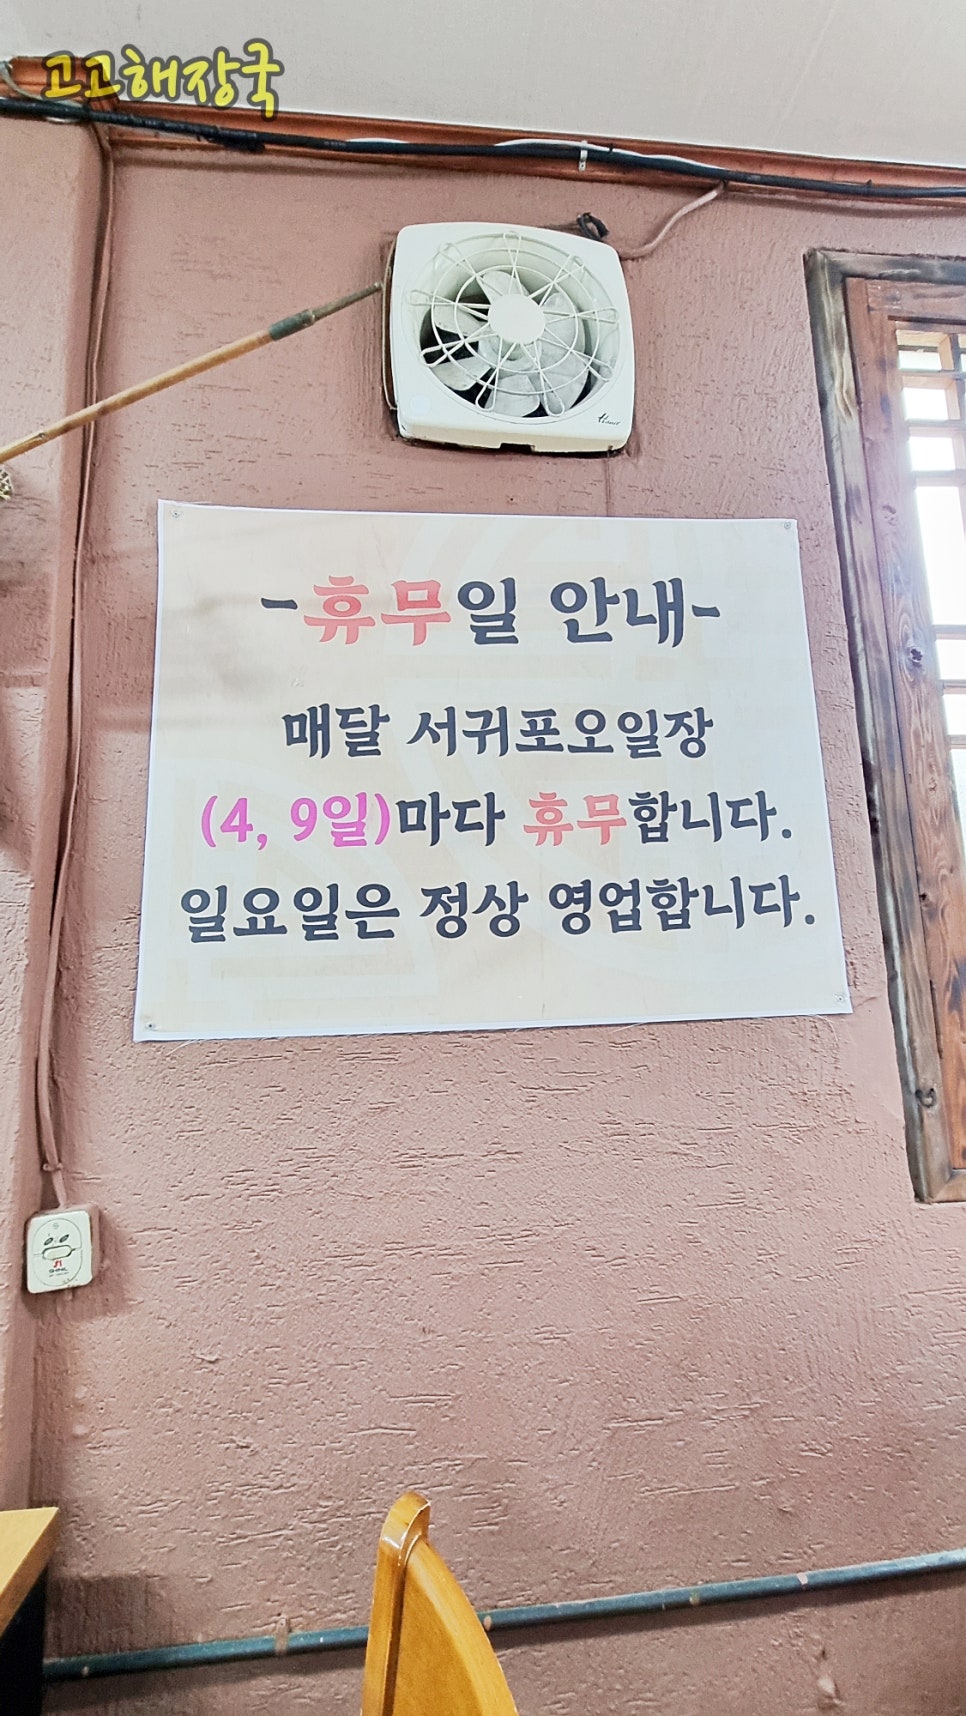 고고해장국
-휴무일 안내-
매달 서귀포오일장
(4, 9일)마다 휴무합니다.
일요일은 정상 영업합니다.